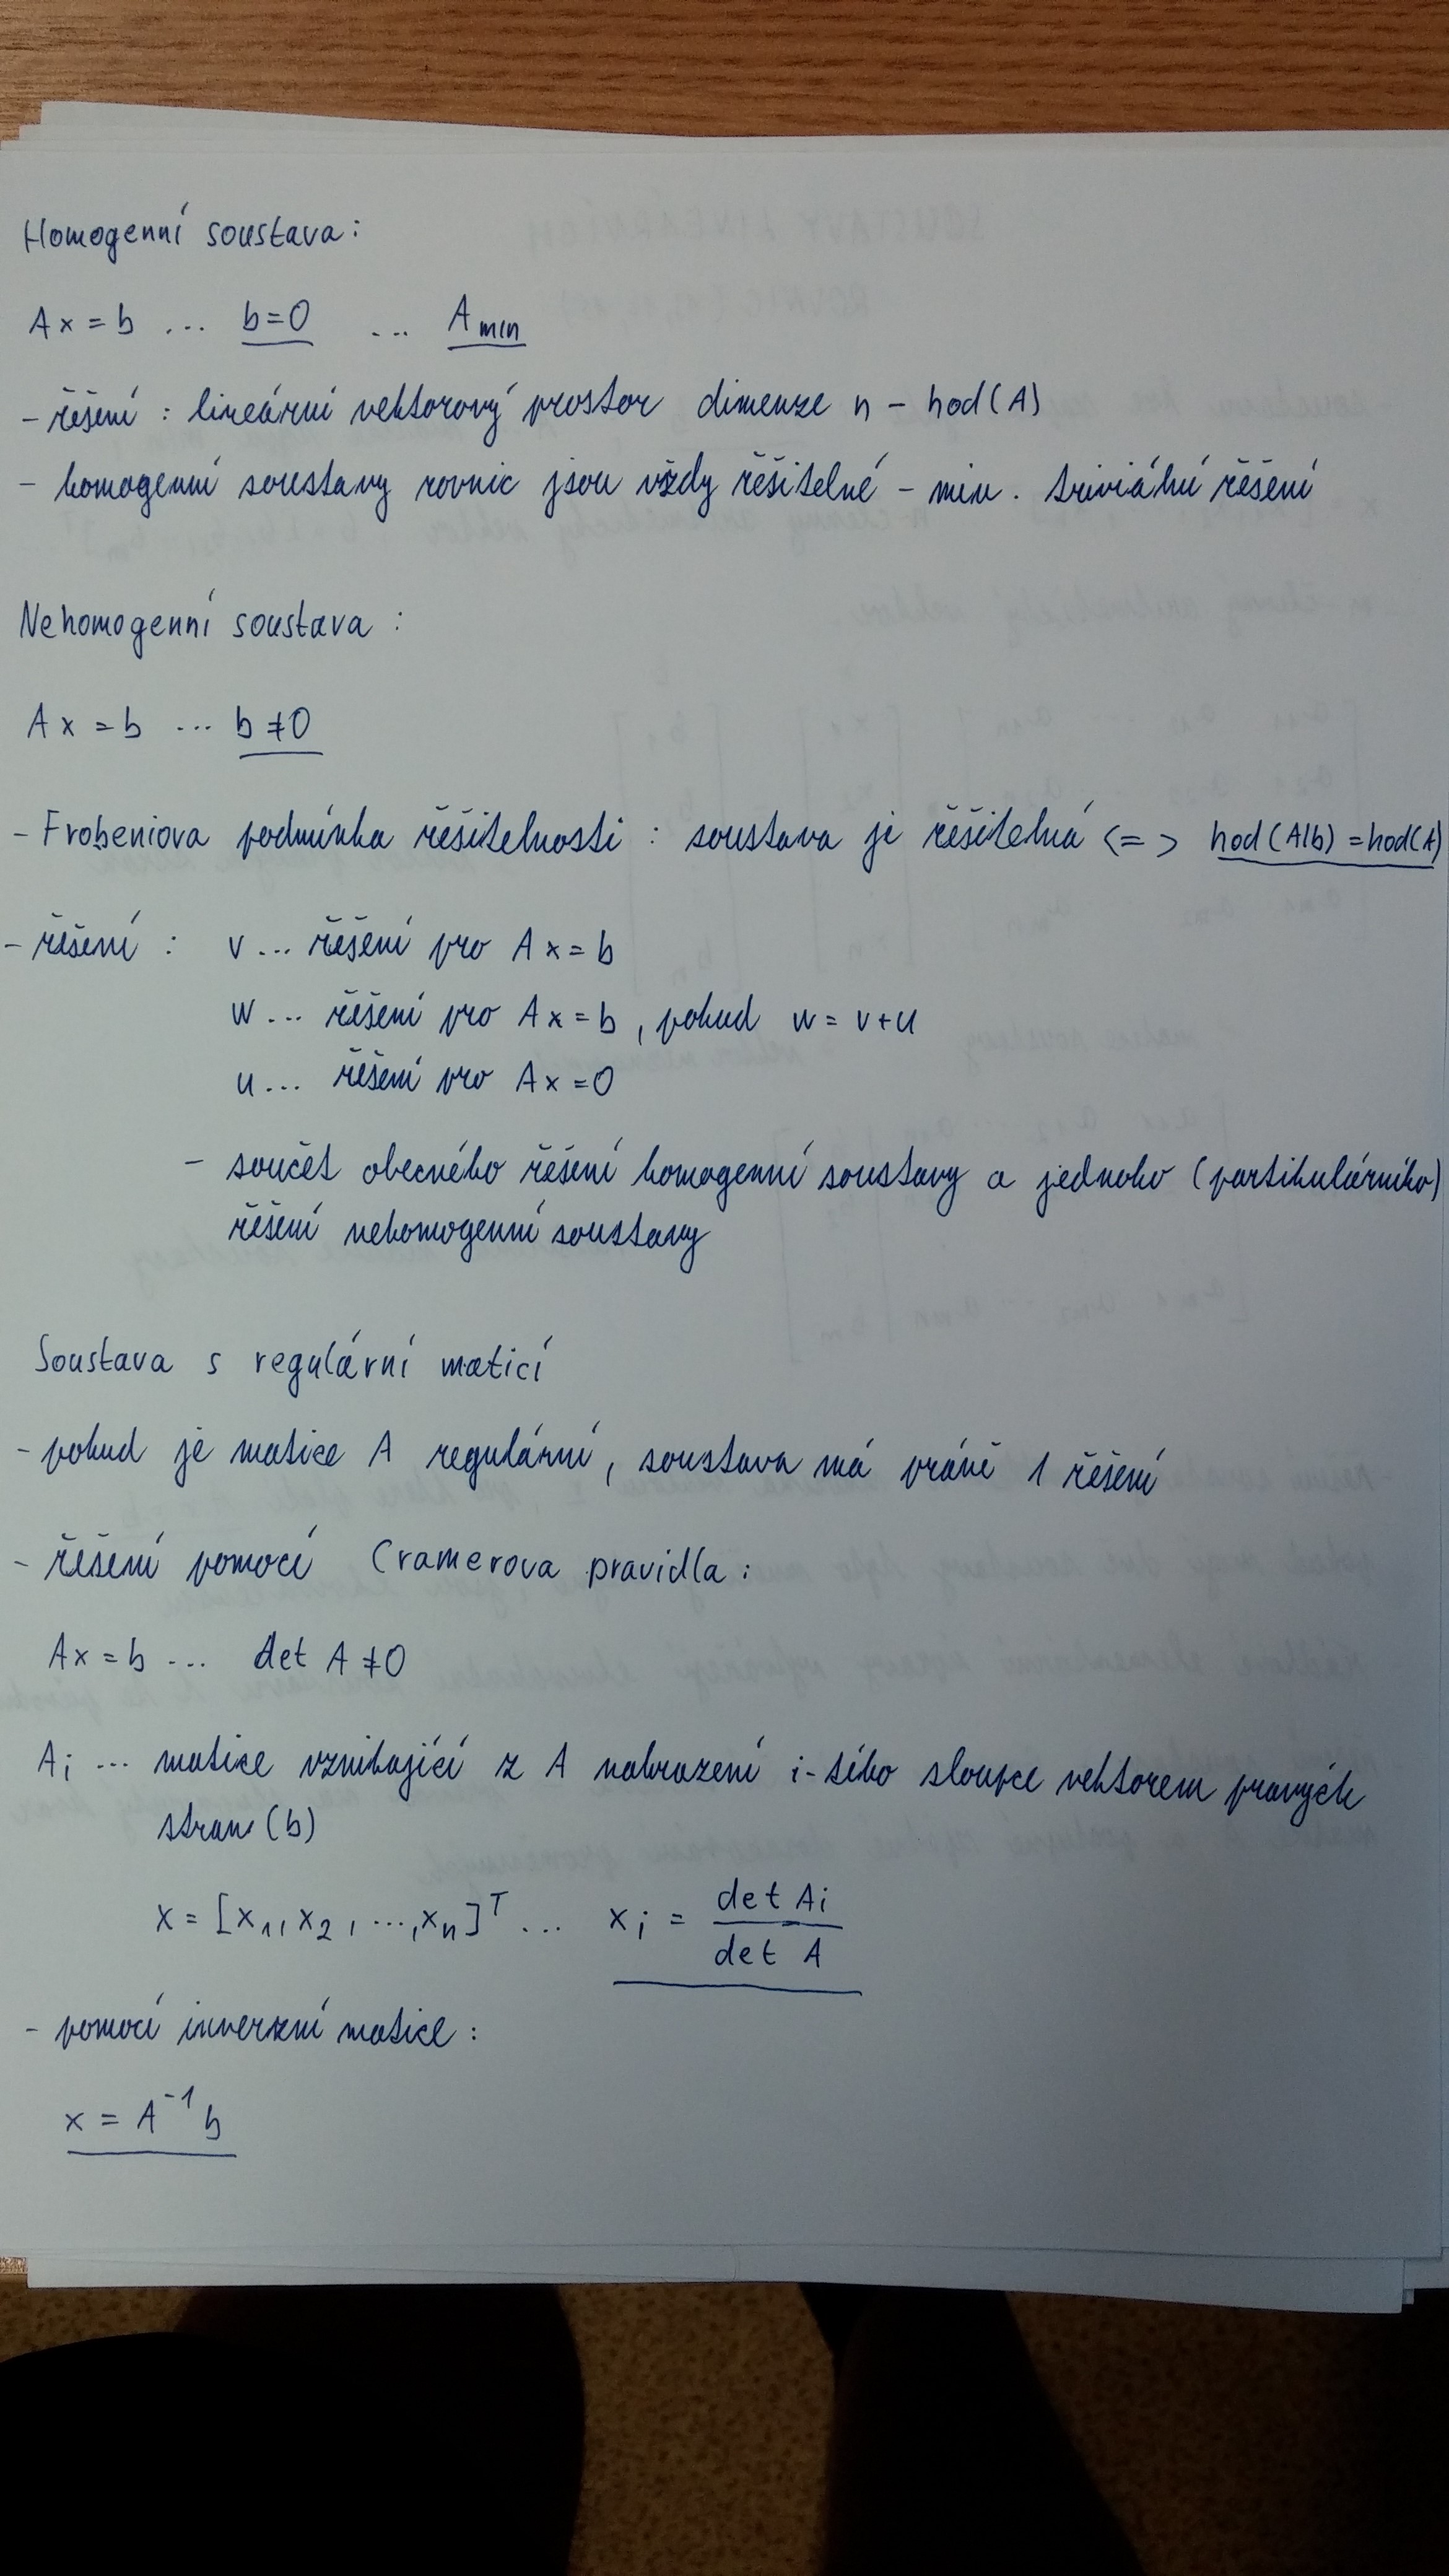 Homogenní soustava:
Ax = b ... b=0 ... A min
- řešení : lineární vektorový prostor dimenze n - hod(A)
- homogenní soustavy rovnic jsou vždy řešitelné - min. triviální řešení
Nehomogenní soustava :
Ax = b ... b ≠ 0
- Frobeniova podmínka řešitelnosti : soustava je řešitelná <=> hod(A|b) = hod(A)
- řešení : v ... řešení pro Ax = b
w ... řešení pro Ax = b, pokud w = v+u
u ... řešení pro Ax = 0
- součet obecného řešení homogenní soustavy a jednoho (partikulárního)
řešení nehomogenní soustavy
Soustava s regulární maticí
- pokud je matice A regulární, soustava má právě 1 řešení
- řešení pomocí Cramerova pravidla :
Ax = b ... det A ≠ 0
Ai ... matice vznikající z A nahrazení i-tého sloupce vektorem pravých
stran (b)
x = [x1, x2, ..., xn]^T ... xi = det Ai / det A
- pomocí inverzní matice :
x = A^-1 b